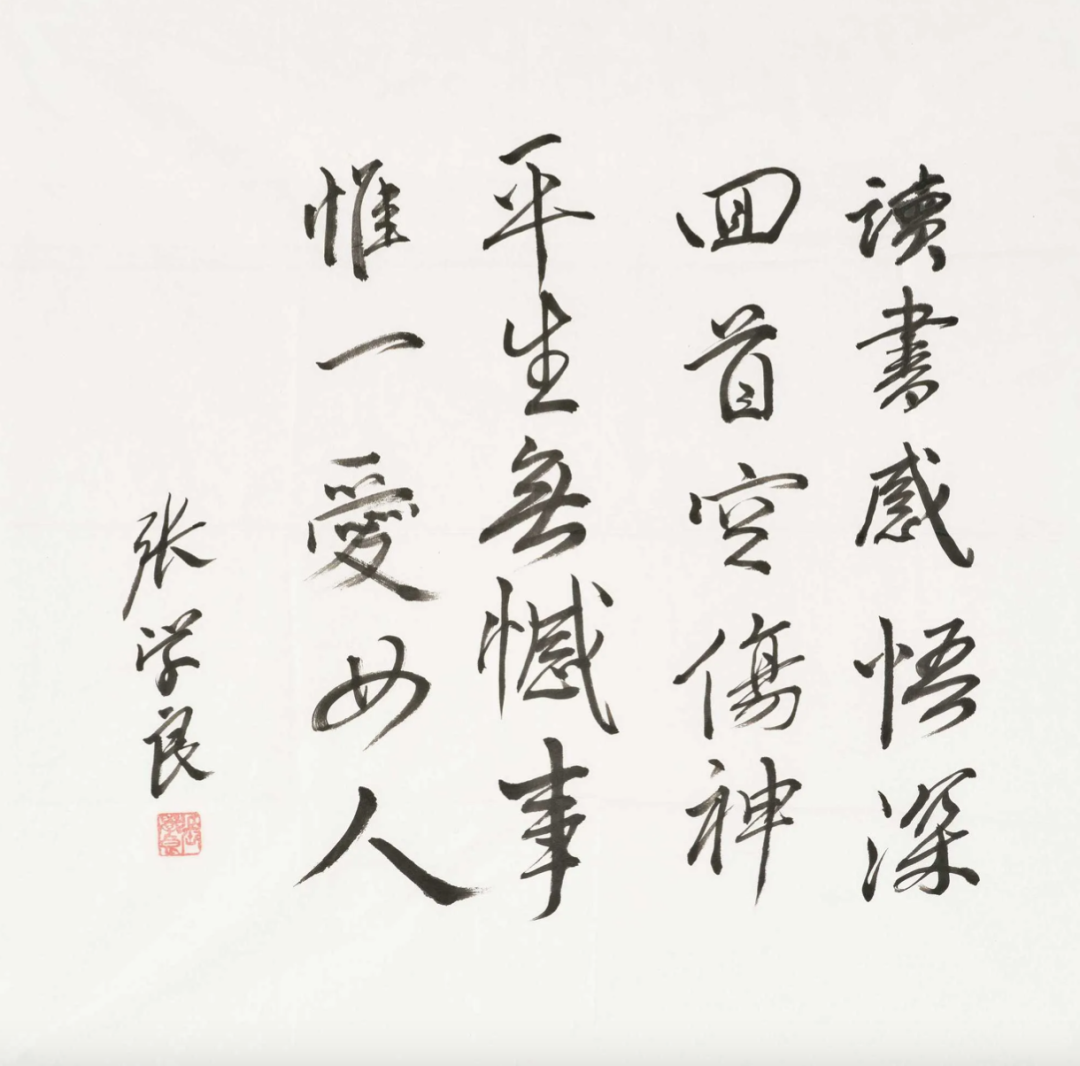 讀書感悟深
回首空傷神
平生無憾事
惟一愛女人
张学良